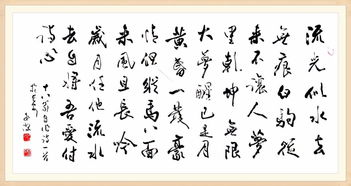 流光似水去
无痕白驹从
来不让人梦
里乾坤无限
大梦醒已是月
黄昏一发豪
情但纵马八面
来风且长吟
岁月任他流水
去自将吾爱付
诗心